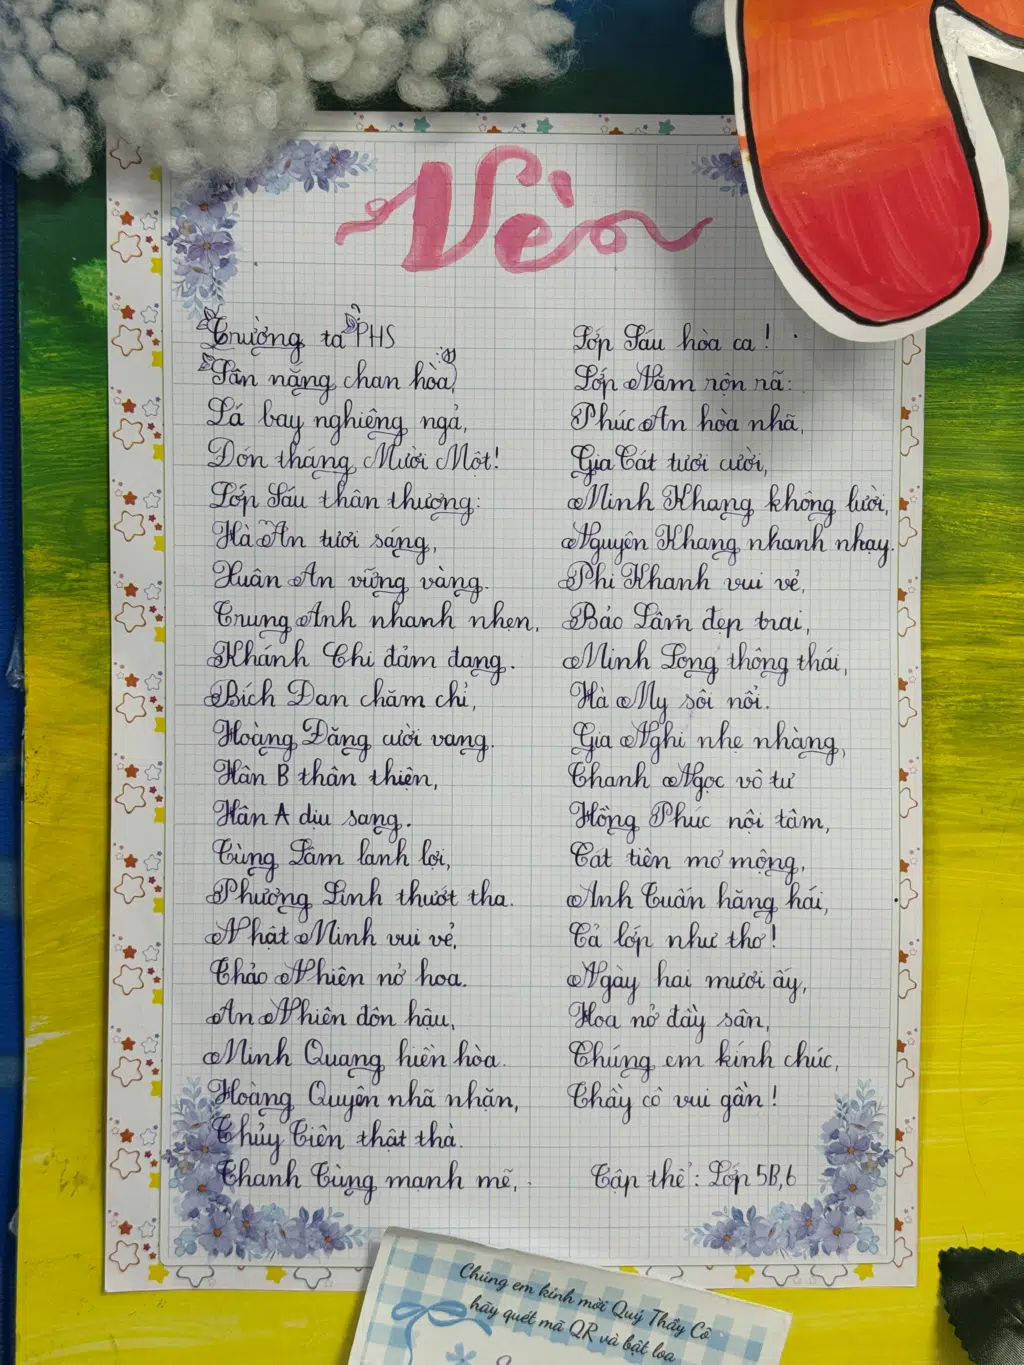 Vè
Trường ta PHS
Sân nặng chan hòa,
Lá bay nghiêng ngả,
Đón tháng Mười Một!
Lớp Sáu thân thương:
Hà An tươi sáng,
Xuân An vững vàng.
Trung Anh nhanh nhẹn,
Khánh Chi đảm đang.
Bích Đan chăm chỉ,
Hoàng Đăng cười vang.
Hân B thân thiện,
Hân A dịu sang.
Tùng Lâm lanh lợi,
Phương Linh thướt tha.
Nhật Minh vui vẻ,
Thảo Nhiên nở hoa.
An Nhiên đôn hậu,
Minh Quang hiền hòa.
Hoàng Quyên nhã nhặn,
Thủy Tiên thật thà.
Thanh Tùng mạnh mẽ,
Lớp Sáu hòa ca!
Lớp Năm rộn rã:
Phúc An hòa nhã,
Gia Cát tươi cười,
Minh Khang không lười,
Nguyên Khang nhanh nhạy.
Phi Khanh vui vẻ,
Bảo Lâm đẹp trai,
Minh Long thông thái,
Hà My sôi nổi.
Gia Nghi nhẹ nhàng,
Thanh Ngọc vô tư
Hồng Phúc nội tâm,
Cát tiên mơ mộng,
Anh Tuấn hăng hái,
Cả lớp như thơ!
Ngày hai mươi ấy,
Hoa nở đầy sân,
Chúng em kính chúc,
Thầy cô vui gần!
Tập thể: Lớp 5B,6
Chúng em kính mời Quý Thầy Cô
hãy quét mã QR và bật loa